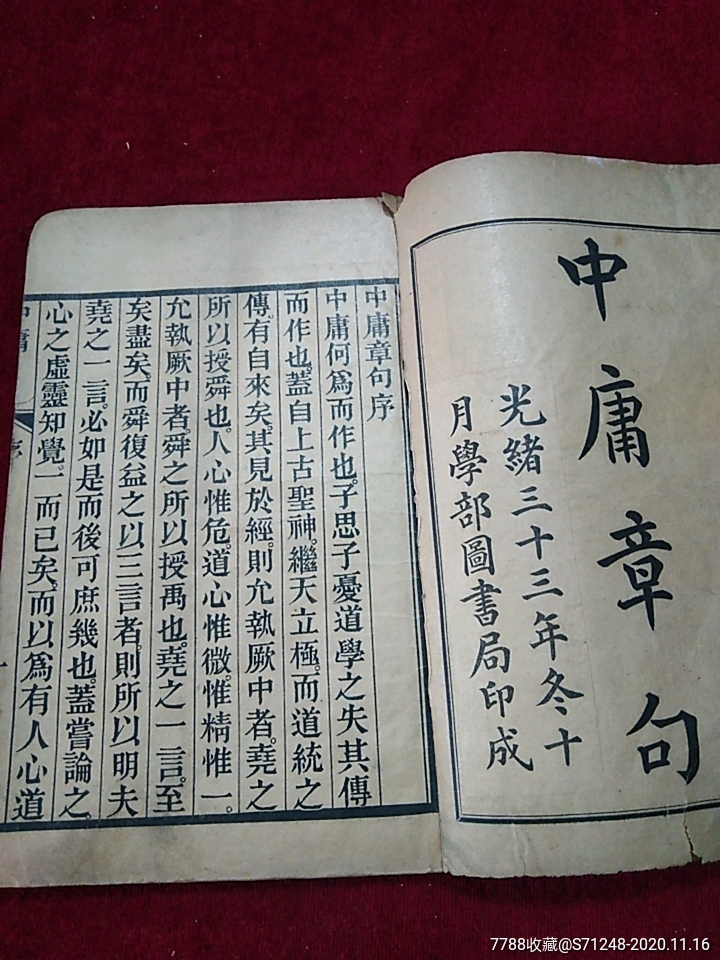 中庸章句
光緒三十三年冬十
月學部圖書局印成
中庸章句序
中庸何為而作也。子思子憂道學之失其傳
而作也。蓋自上古聖神。繼天立極。而道統之
傳。有自來矣。其見於經。則允執厥中者。堯之
所以授舜也。人心惟危。道心惟微。惟精惟一。
允執厥中者。舜之所以授禹也。堯之一言。至
矣盡矣。而舜復益之以三言者。則所以明夫
堯之一言。必如是而後可庶幾也。蓋嘗論之。
心之虛靈知覺。一而已矣。而以為有人心道
中庸 序 一
7788收藏@S71248-2020.11.16